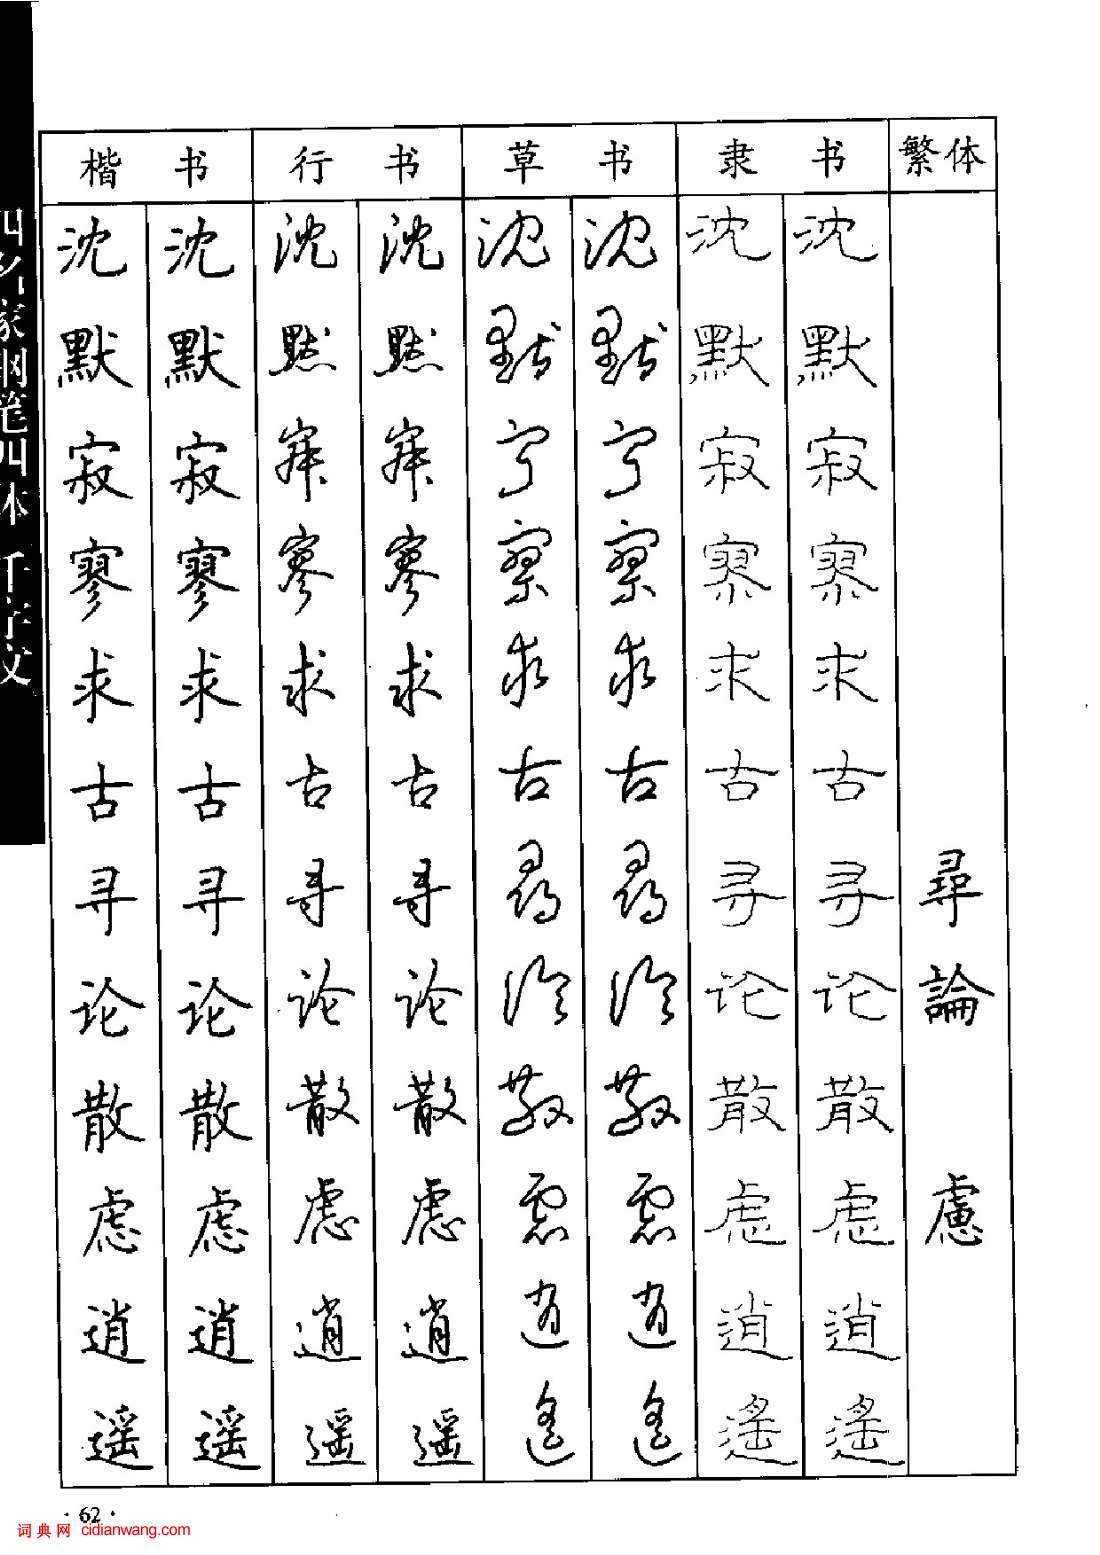 四名家钢笔四体 千字文
楷书 行书 草书 隶书 繁体
沈 沈 沈 沈 沈 沈 沈 沈
默 默 默 默 默 默 默 默
寂 寂 寂 寂 寂 寂 寂 寂
寥 寥 寥 寥 寥 寥 寥 寥
求 求 求 求 求 求 求 求
古 古 古 古 古 古 古 古
寻 寻 寻 寻 寻 寻 寻 寻 尋
论 论 论 论 论 论 论 论 論
散 散 散 散 散 散 散 散
虑 虑 虑 虑 虑 虑 虑 虑 慮
逍 逍 逍 逍 逍 逍 逍 逍
遥 遥 遥 遥 遥 遥 遥 遥
·62·
词典网 cidianwang.com